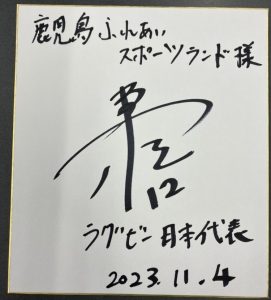 鹿児島ふれあい
スポーツランド様
12
ラグビー日本代表
2023.11.4